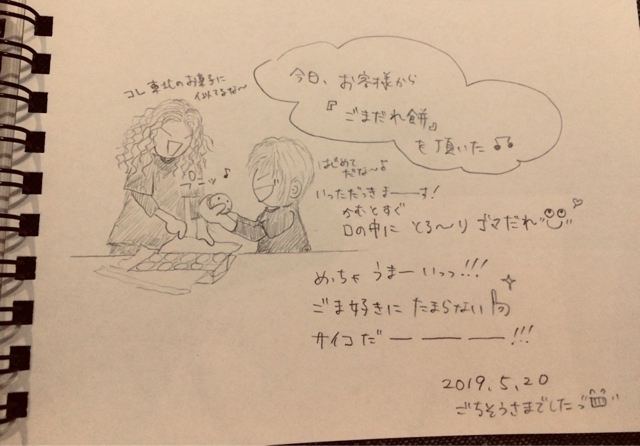 今日、お客様から
『ごまだれ餅』
を頂いた♫
コレ東北のお菓子に
似てるな〜
プニッ♪
はじめて
だな〜♪
いっただっきまーーす!
かむとすぐ
口の中に とろ〜り ゴマだれ
めっちゃ うまーいっっ!!!
ごま好きに たまらない
サイコだーーー!!!
2019.5.20
ごちそうさまでしたっ